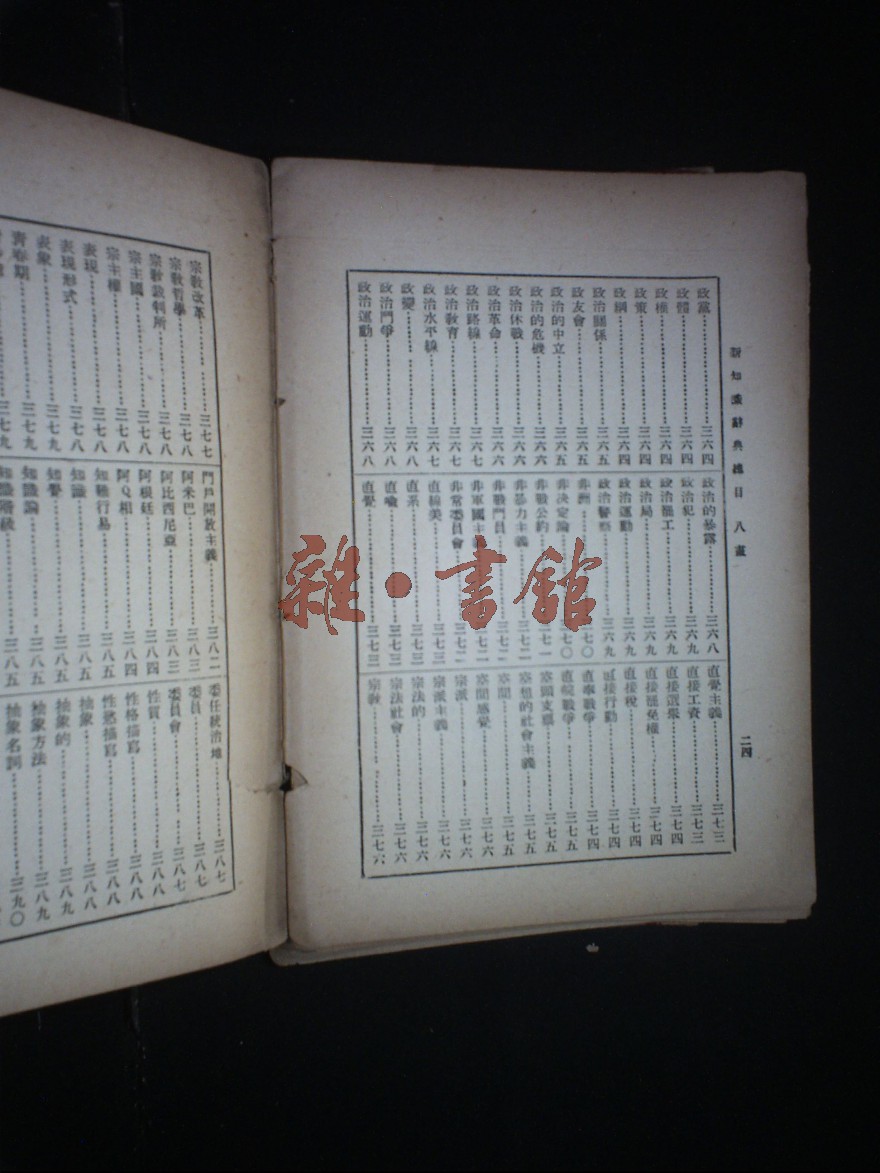 新知識辭典總目 八畫
二四
政黨……三六四
政體……三六四
政權……三六四
政策……三六四
政綱……三六四
政治關係……三六五
政友會……三六五
政治的中立……三六五
政治的危機……三六六
政治休戰……三六六
政治革命……三六六
政治路線……三六六
政治教育……三六七
政治水平線……三六七
政變……三六八
政治鬥爭……三六八
政治運動……三六八
政治的暴露……三六八
政治犯……三六九
政治罷工……三六九
政治局……三六九
政治運動……三六九
政治警察……三六九
非洲……三七〇
非決定論……三七〇
非戰公約……三七一
非暴力主義……三七二
非戰鬥員……三七二
非軍國主義……三七二
非常委員會……三七二
直線美……三七三
直系……三七三
直喩……三七三
直覺……三七三
直覺主義……三七三
直接工資……三七三
直接選舉……三七四
直接罷免權……三七四
直接稅……三七四
直接行動……三七四
直奉戰爭……三七四
直皖戰爭……三七五
空頭支票……三七五
空想的社會主義……三七五
空間……三七五
空間感覺……三七六
宗派……三七六
宗派主義……三七六
宗法的……三七六
宗法社會……三七六
宗教……三七六
宗教改革……三七七
宗教哲學……三七八
宗教裁判所……三七八
宗主國……三七八
宗主權……三七八
表現……三七八
表現形式……三七八
表象……三七九
青春期……三七九
門戶開放主義……三八二
阿米巴……三八三
阿比西尼亞……三八三
阿根廷……三八四
阿Q相……三八四
知難行易……三八五
知識……三八五
知覺……三八五
知識論……三八五
知識階級……三八五
委任統治地……三八七
委員……三八七
委員會……三八七
性質……三八八
性格描寫……三八八
性慾描寫……三八八
抽象……三八八
抽象的……三八九
抽象方法……三八九
抽象名詞……三九〇
雜·書館